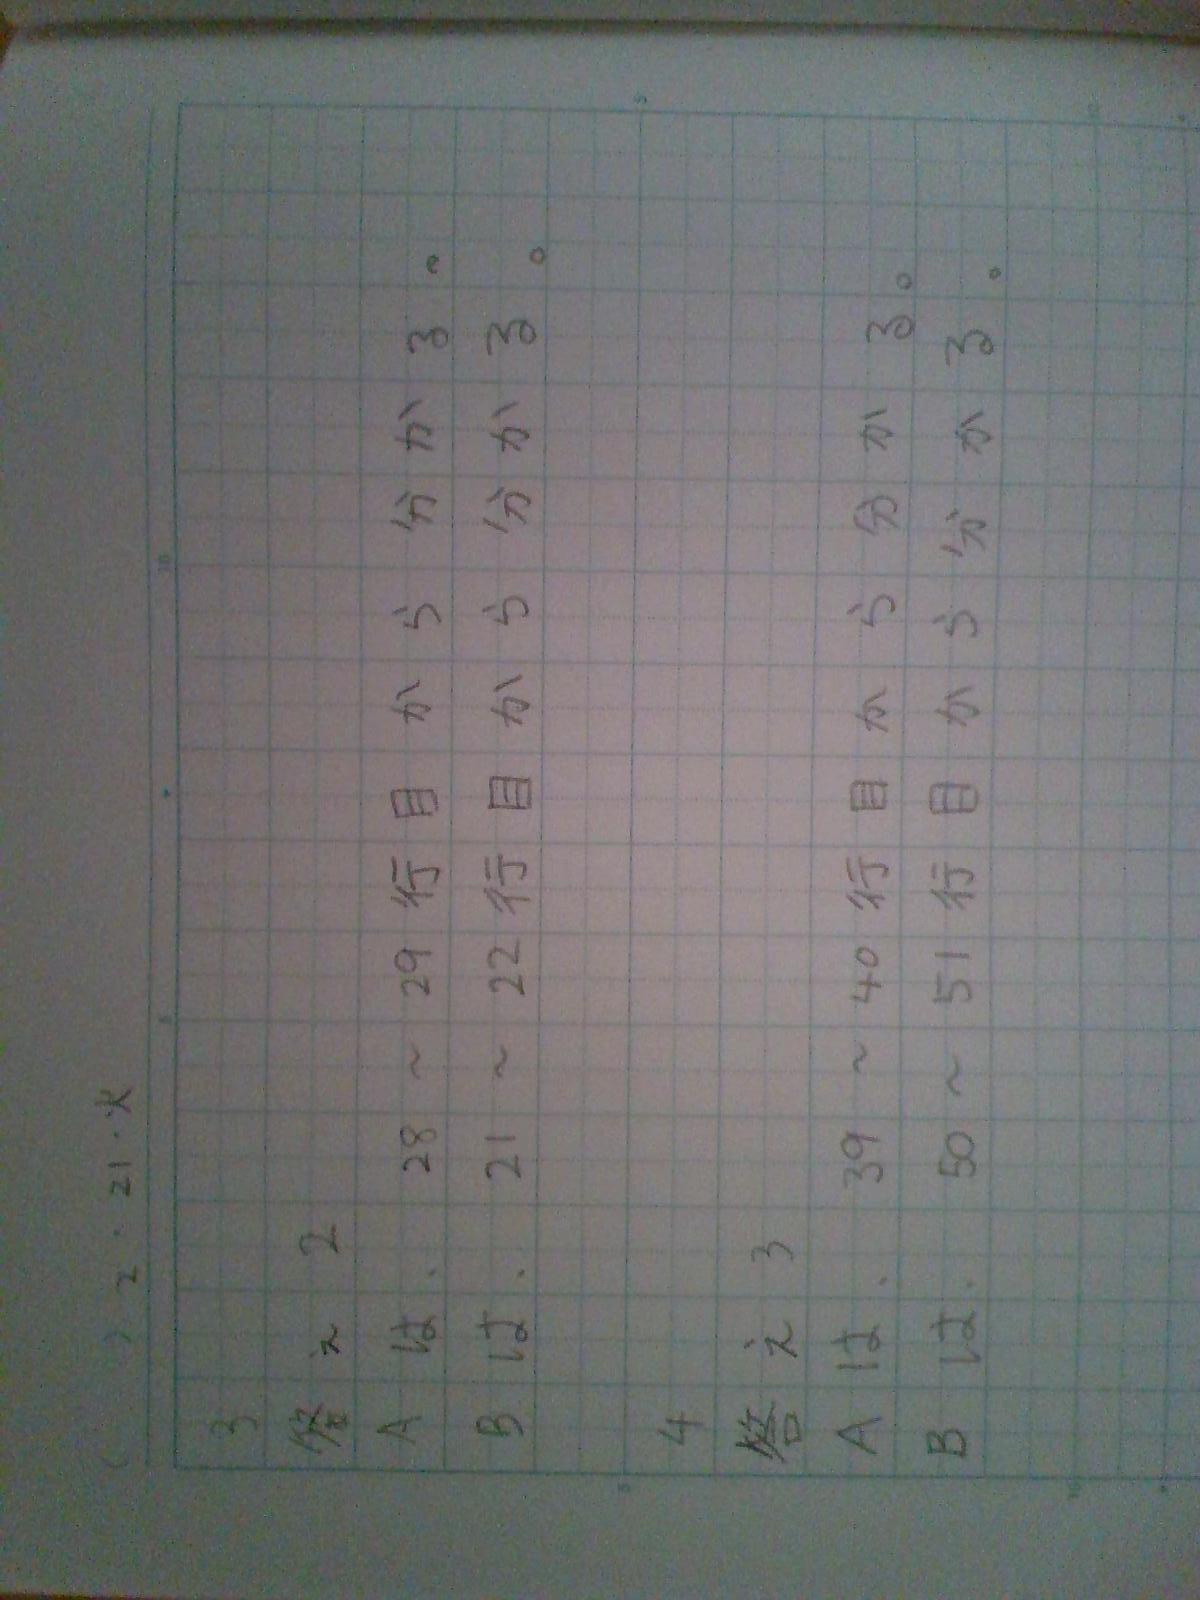 ( ) 2・21・火
3
答え 2
Aは、28～29行目から分かる。
Bは、21～22行目から分かる。
4
答え 3
Aは、39～40行目から分かる。
Bは、50～51行目から分かる。